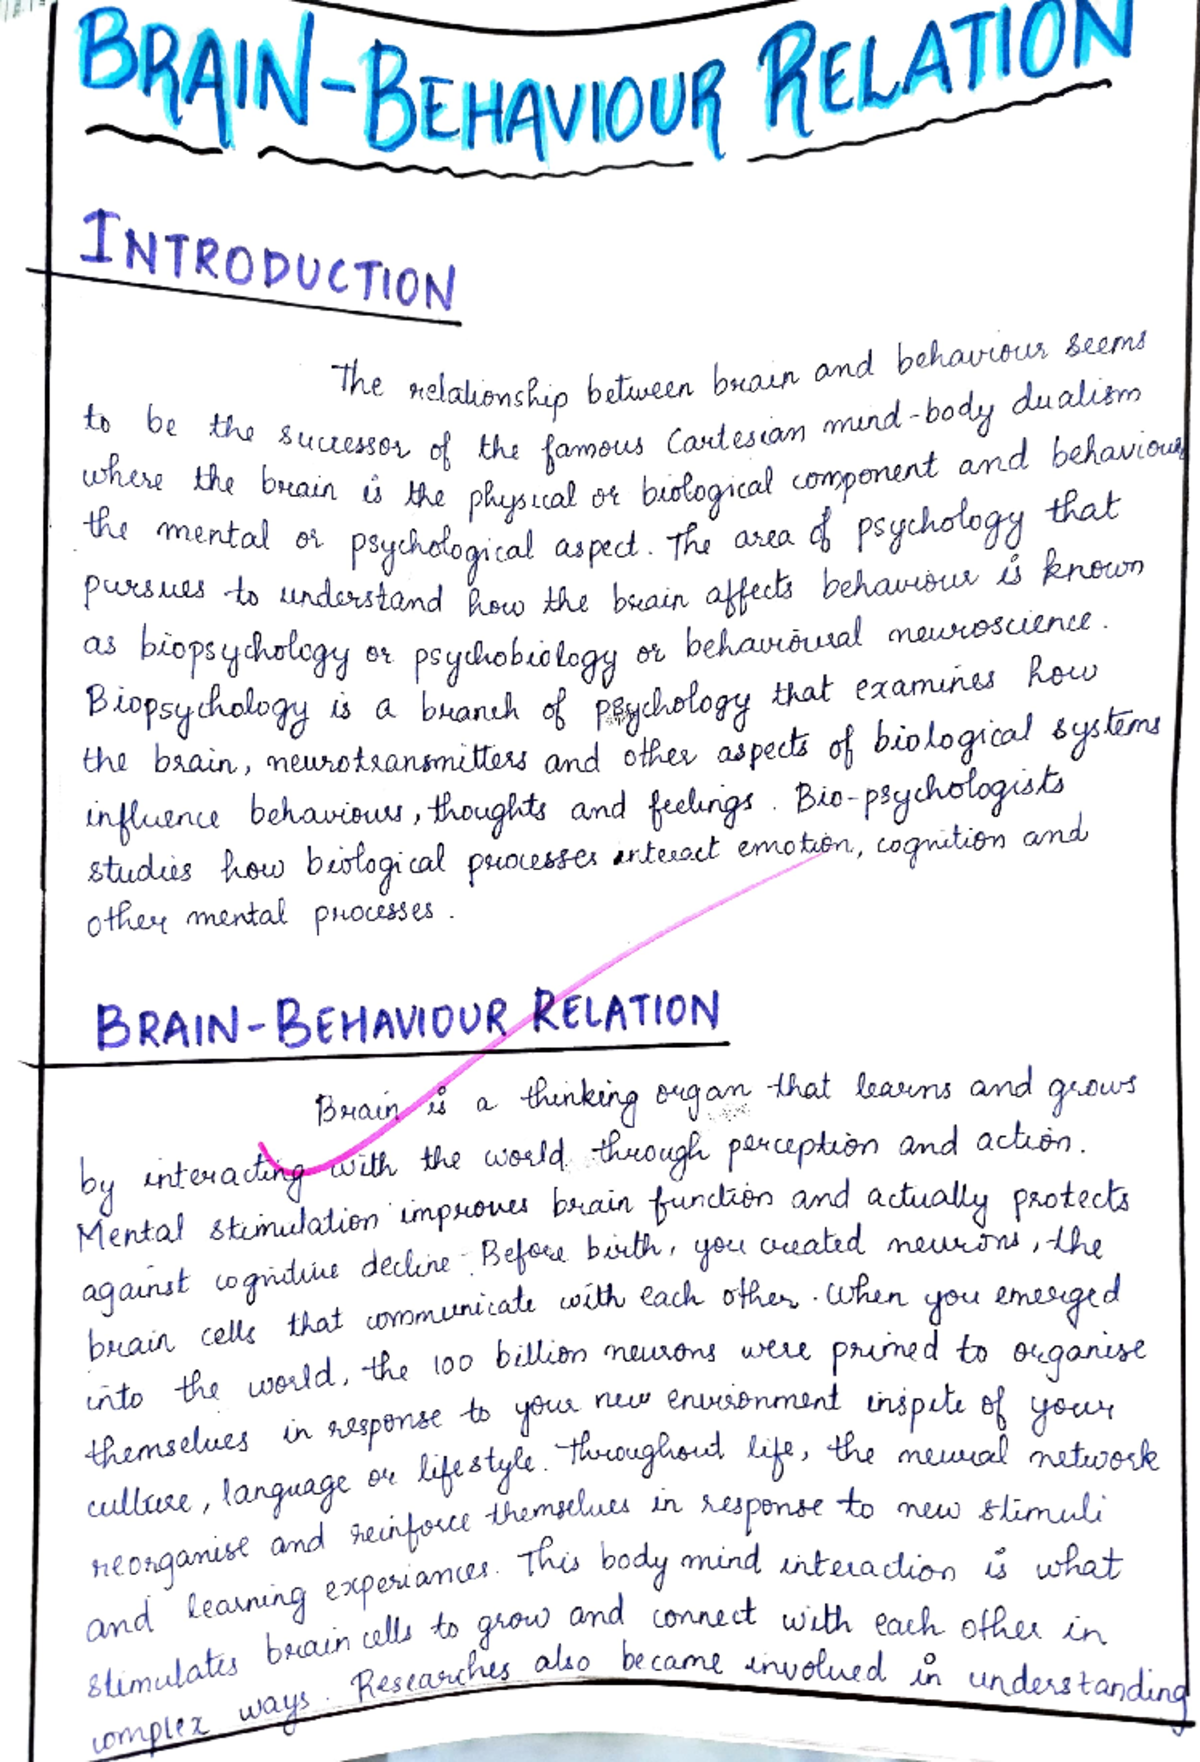 BRAIN-BEHAVIOUR RELATION
INTRODUCTION
The relationship between brain and behaviour seems
to be the successor of the famous Cartesian mind-body dualism
where the brain is the physical or biological component and behaviour
the mental or psychological aspect. The area of psychology that
pursues to understand how the brain affects behaviour is known
as biopsychology or psychobiology or behavioural neuroscience.
Biopsychology is a branch of psychology that examines how
the brain, neurotransmitters and other aspects of biological systems
influence behaviours, thoughts and feelings. Bio-psychologists
studies how biological processes interact emotion, cognition and
other mental processes.
BRAIN-BEHAVIOUR RELATION
Brain is a thinking organ that learns and grows
by interacting with the world through perception and action.
Mental stimulation improves brain function and actually protects
against cognitive decline. Before birth, you created neurons, the
brain cells that communicate with each other. When you emerged
into the world, the 100 billion neurons were primed to organise
themselves in response to your new environment inspite of your
culture, language or lifestyle. Throughout life, the neural network
reorganise and reinforce themselves in response to new stimuli
and learning experiances. This body mind interaction is what
stimulates brain cells to grow and connect with each other in
complex ways. Researches also became involved in understanding